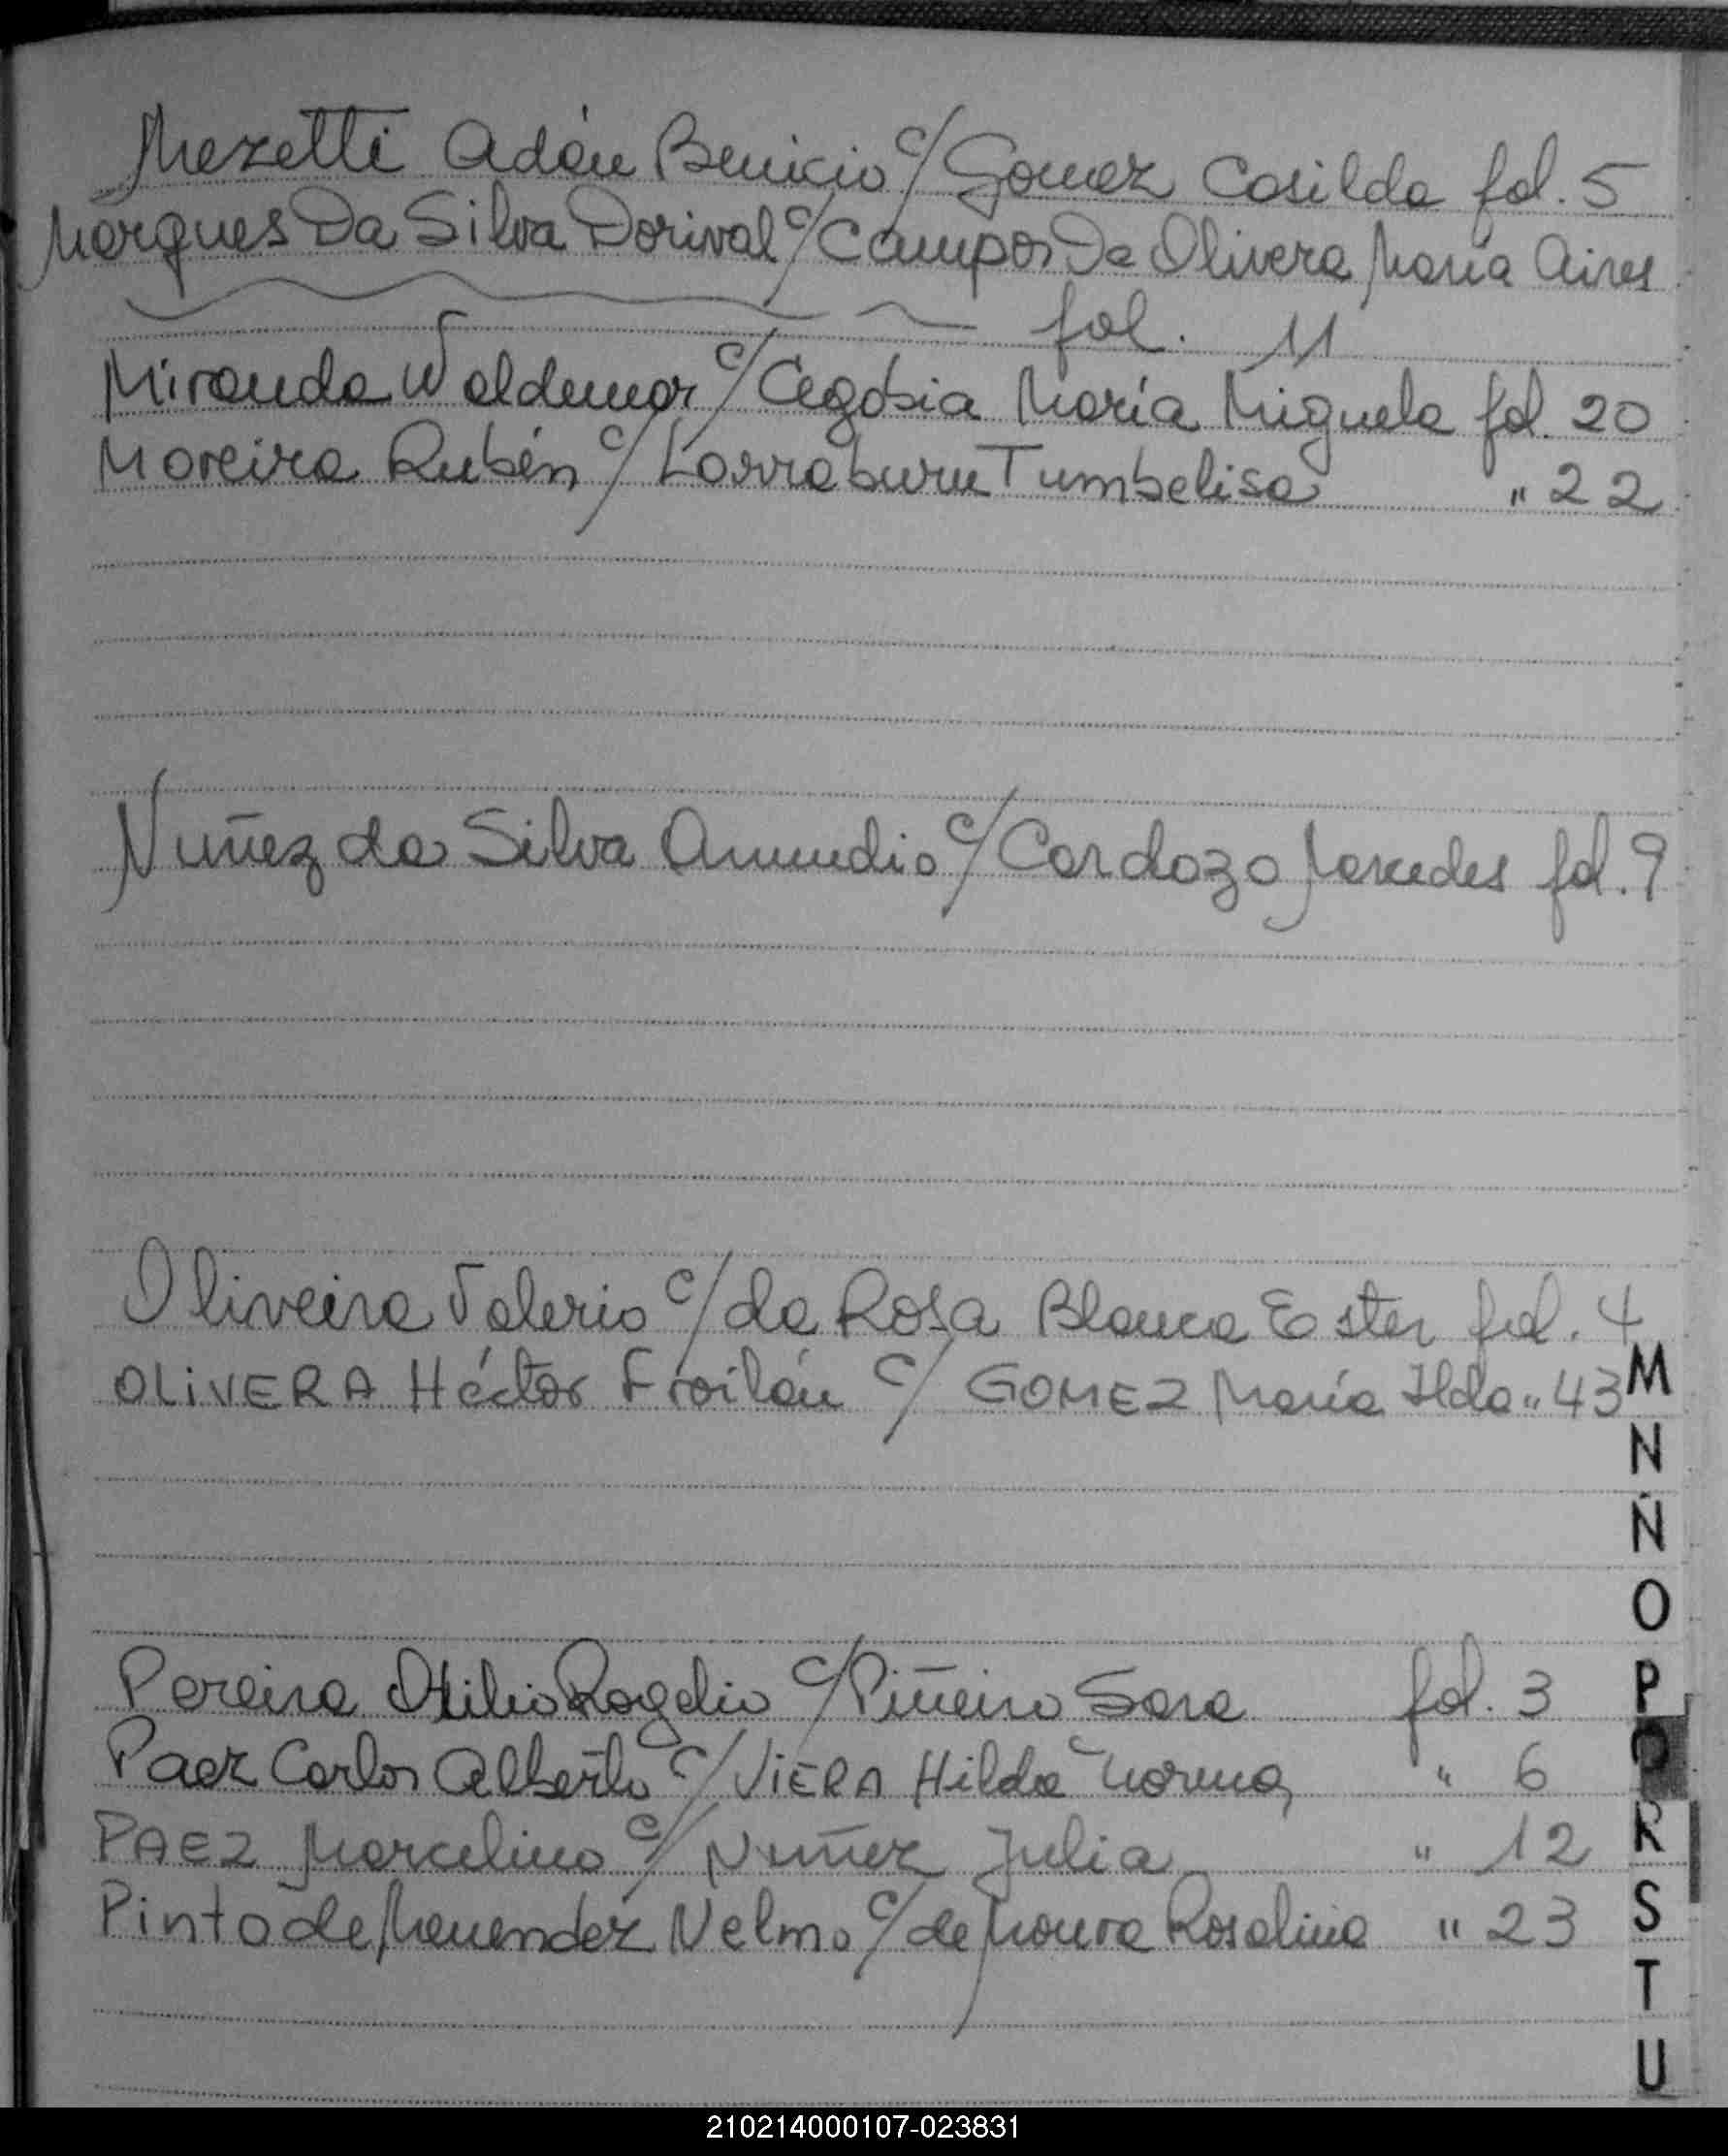 Mezetti Adán Benicio c/ Gomez Casilda fol. 5
Márques Da Silva Dorival c/ Campos De Olivera María Aires
fol. 11
Miranda Waldemar c/ Cegobia María Miguela fol. 20
Moreira Rubén c/ Larraburu Tumbelisa " 22
Nuñez da Silva Amundio c/ Cardozo Mercedes fol. 9
Oliveira Valerio c/ da Rosa Blanca Ester fol. 4
OLIVERA Héctor Froilán c/ GOMEZ María Ilda " 43
Pereira Otilio Rogelio c/ Piñeiro Sara fol. 3
Paez Carlos Alberto c/ VIERA Hilda Norma " 6
PAEZ Marcelino c/ Nuñez Julia " 12
Pinto de Menendez Nelmo c/ de Moura Rosalina " 23
M
N
Ñ
O
P
Q
R
S
T
U
210214000107-023831